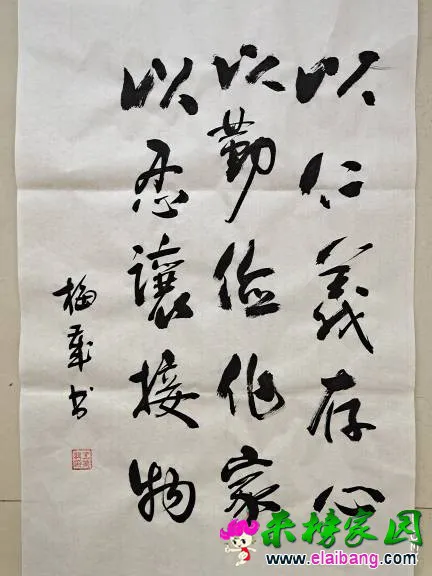 以仁義存心
以勤儉作家
以忍讓接物
書
来榜家园
www.elaibang.com